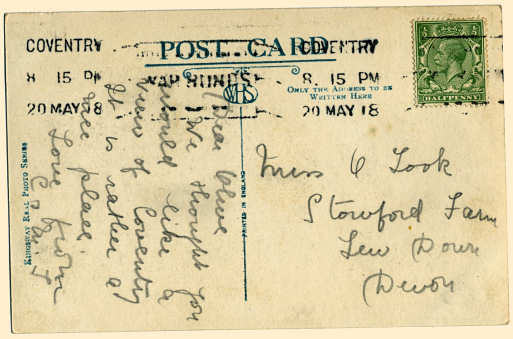 COVENTRY
8. 15 PM
20 MAY 18
POST CARD
WAR BONDS
COVENTRY
8. 15 PM
20 MAY 18
HALFPENNY
WHS
ONLY THE ADDRESS TO BE
WRITTEN HERE
KINGSWAY REAL PHOTO SERIES
PRINTED IN ENGLAND
Dear Olive
We thought you
would like a
view of Coventry
It is rather a
nice place.
Love from
Miss O Took
Stowford Farm
Lew Down
Devon